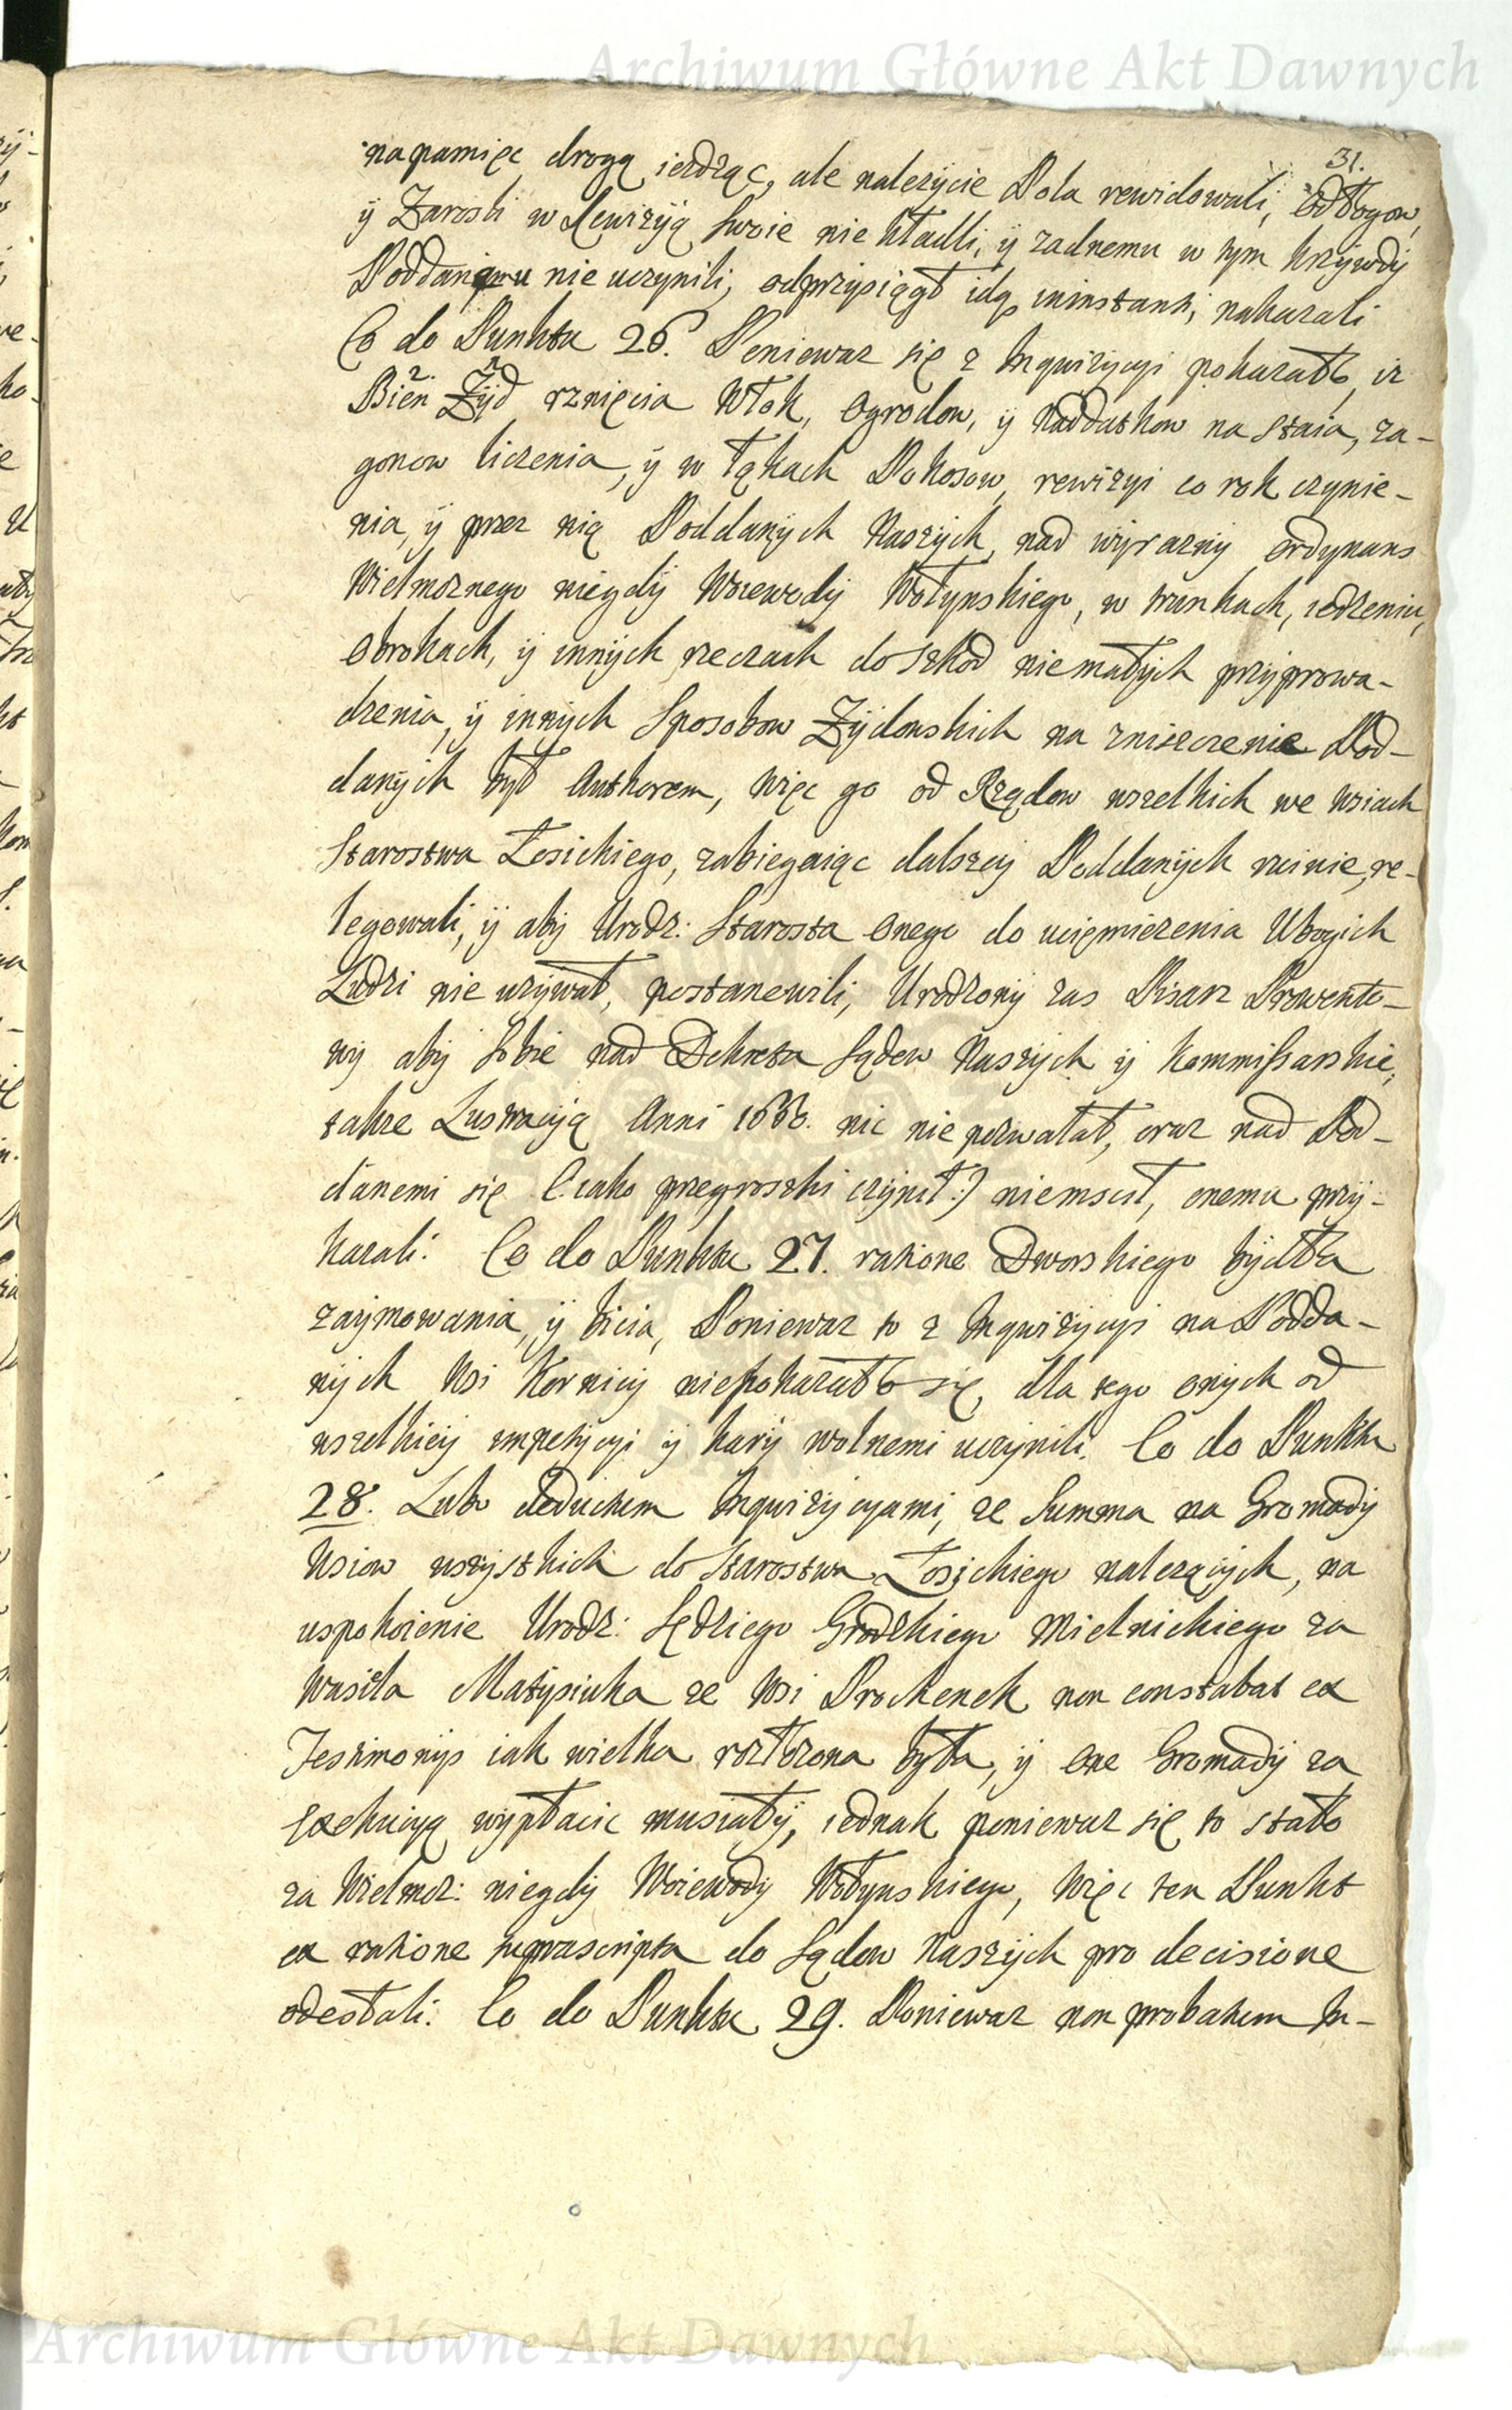 Archiwum Główne Akt Dawnych
31.
napamięc drogą ieżdżąc, ale należycie Pola rewidowali, Odłogow,
ÿ Zarosli w Rewizÿą swoie nie kładli, ÿ zadnemu w tym krzÿwdÿ
Poddanemu nie uczynili, odprzysiągł idq ininstanti nakazali
Co do Punktu 26. Poniewaz się z Inquizycyi pokazało, iz
Bień Zÿd rznięcia Włok, Ogrodow, ÿ Naddatkow na staia, za-
gonow liczenia, ÿ w łąkach Pokosow, rewizyi co rok czynie-
nia, ÿ przez nią Poddanÿch Naszÿch, nad wÿrazny Ordynans
Wielmoznego niegdÿ Woiewodÿ Wołynskiego, w trunkach, iedzeniu,
Obrokach, ÿ innÿch rzeczach do szkod niemałÿch przÿprowa-
dzenia, ÿ innÿch Sposobow Zÿdowskich na zniszczenie Pod-
danÿch bÿł Authorem, Więc go od Rządow wszelkich we Wsiach
Starostwa Łosickiego, zabiegaiąc dalszeÿ Poddanÿch ruinie, re-
legowali, ÿ abÿ Urodz: Starosta Onego do uciemiezenia Ubogich
Ludzi nie uzÿwał, postanowili, Urodzonÿ zas Pisarz Prowento-
wÿ abÿ sobie nad Dekreta Sądow Naszÿch ÿ Kommissarskie,
takze Lustracÿą Anni 1666. nic nie pozwalał, oraz nad Pod-
danemi się (iako przegroszki czÿnił:) niemscił, onemu przÿ-
kazali. Co do Punktu 27. ratione Dworskiego bÿdła
zaÿmowania, ÿ bicia, Poniewaz to z Inquizÿcyi na Podda-
nÿch Wsi Kornicÿ niepokazało się, dla tego onÿch od
wszelkieÿ impetÿcyi ÿ karÿ wolnemi uczÿnili. Co do Punktu
28. Lubo deductum Inquizÿcyami, ze Summa na Gromadÿ
Wsiow wszÿstkich do Starostwa Łosickiego nalezącÿch, na
uspokoienie Urodz: Sędziego Grodzkiego Mielnickiego za
Wasila Matÿsiuka ze Wsi Prochenek non constabat ex
Testimonÿs iak wielka rozłozona była, ÿ One Gromadÿ za
Exekucyą wypłacic musiałÿ, iednak poniewaz się to stało
za Wielmoz: niegdÿ Woiewodÿ Wołynskiego, Więc ten Punkt
ex ratione suprascripta do Sądow Naszÿch pro decisione
odesłali. Co do Punktu 29. Poniewaz non probatum In-
Archiwum Główne Akt Dawnych